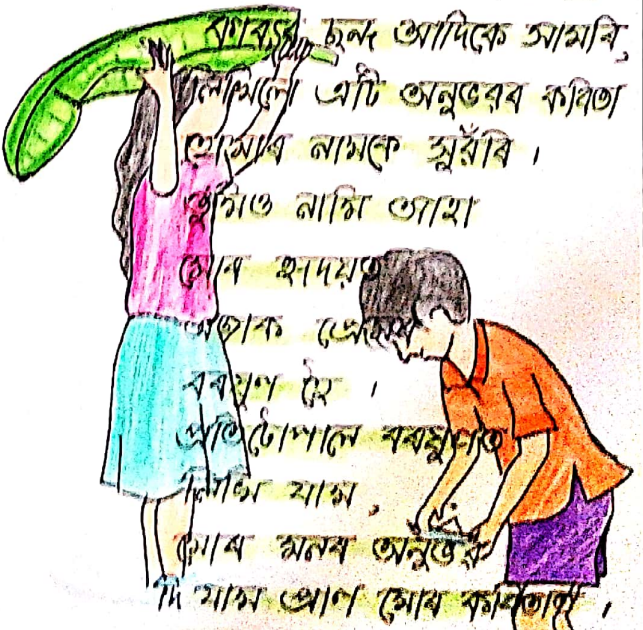 কাব্যৰ ছন্দ আদিকে সামৰি,
লিখিলো এটি অনুভৱৰ কবিতা
তোমাৰ নামকে সুঁৱৰি ।
তুমিও নামি আহা
মোৰ হৃদয়ত
এজাক প্ৰেমৰ
বৰষুণ হৈ ।
প্ৰতিটোপাল বৰষুণত
লিখি যাম,
মোৰ মনৰ অনুভৱ
দি যাম প্ৰাণ মোৰ কবিতাত ।